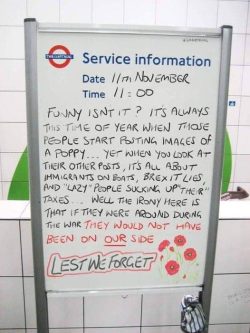 Service information
Date 11TH NOVEMBER
Time 11:00
FUNNY ISNT IT? IT'S ALWAYS
THIS TIME OF YEAR WHEN THOSE
PEOPLE START POSTING IMAGES OF
A POPPY... YET WHEN YOU LOOK AT
THEIR OTHER POSTS, IT'S ALL ABOUT
IMMIGRANTS ON BOATS, BREXIT LIES,
AND "LAZY" PEOPLE SUCKING UP "THEIR"
TAXES... WELL THE IRONY HERE IS
THAT IF THEY WERE AROUND DURING
THE WAR THEY WOULD NOT HAVE
BEEN ON OUR SIDE
LEST WE FORGET